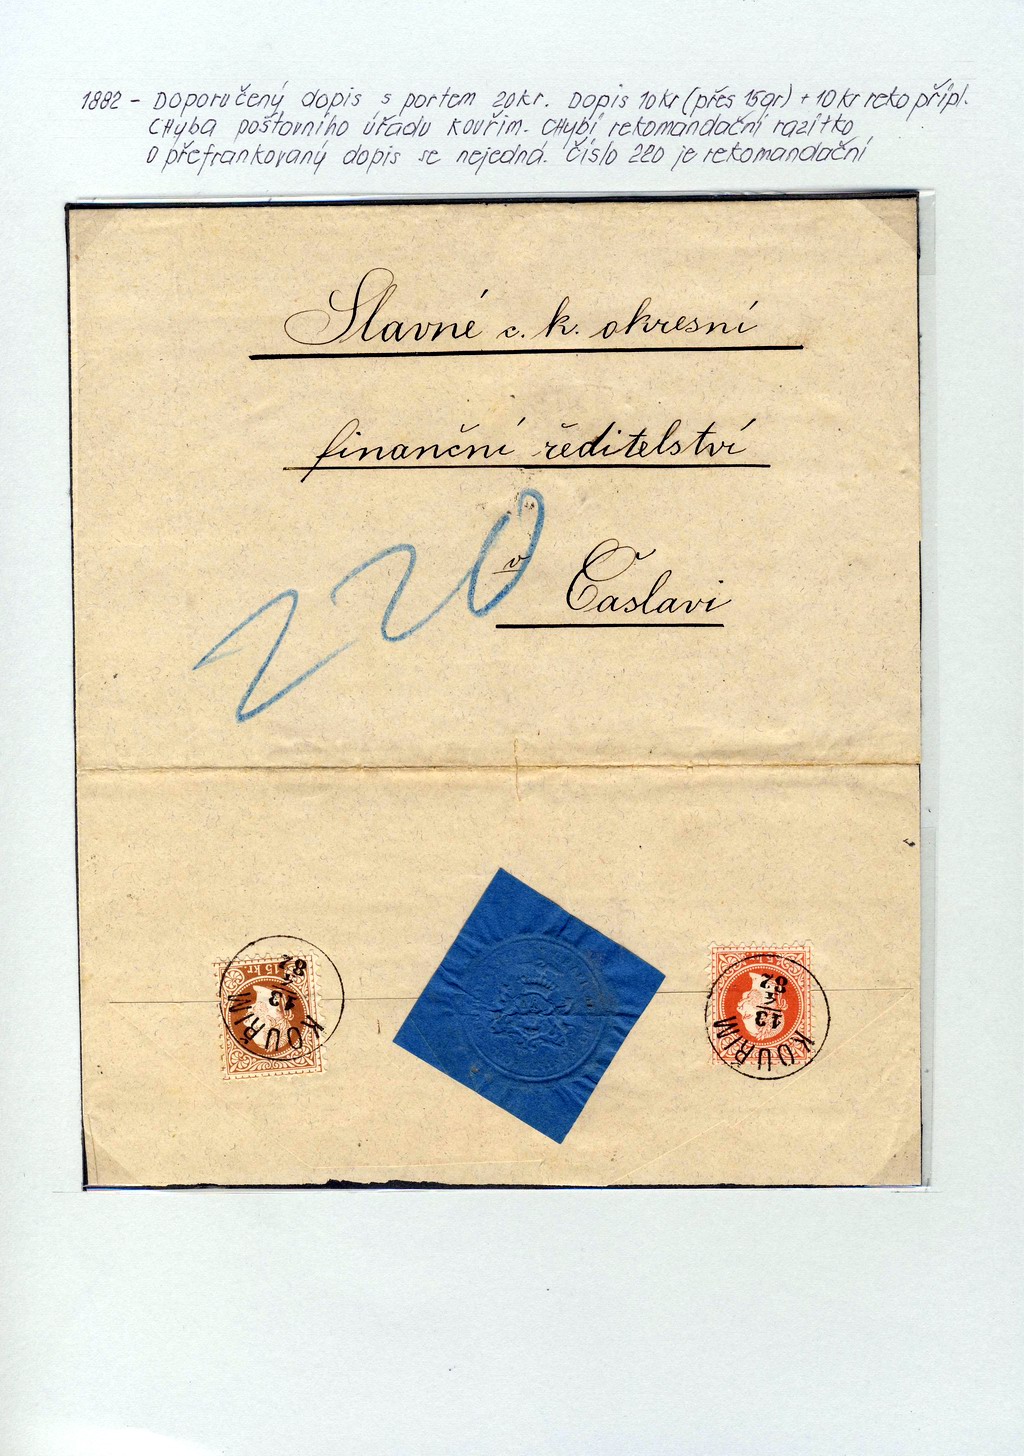 1882 - Doporučený dopis s portem 20kr. Dopis 10kr (přes 15gr) + 10kr reko přípl.
Chyba poštovního úřadu Kouřim. Chybí rekomandační razítko
O přefrankovaný dopis se nejedná. Číslo 220 je rekomandační
Slavné c. k. okresní
finanční ředitelství
220
v Čáslavi
15 kr
KOUŘIM
13/3
82
KOUŘIM
13/3
82